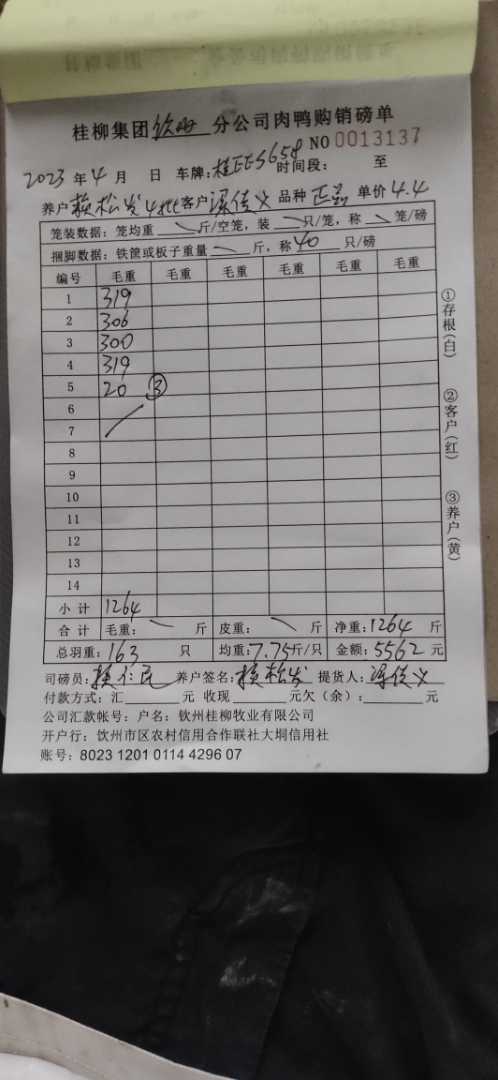 桂柳集团 分公司肉鸭购销磅单
NO 0013137
2023 年 4 月 日 车牌: 桂EES658 时间段: 至
养户 松发 4批 客户 梁俊义 品种 正品 单价 4.4
笼装数据: 笼均重 斤/空笼, 装 只/笼, 称 笼/磅
捆脚数据: 铁篼或板子重量 斤, 称 40 只/磅
编号 毛重 毛重 毛重 毛重 毛重 毛重
1 319
2 306
3 300
4 319
5 20 ③
6
7
8
9
10
11
12
13
14
小计 1264
合计 毛重: 斤 皮重: 斤 净重: 1264 斤
总羽重: 163 只 均重: 7.75 斤/只 金额: 5562 元
司磅员: 仁民 养户签名: 松发 提货人: 梁俊义
付款方式: 汇 元 收现 元欠(余): 元
公司汇款帐号: 户名: 钦州桂柳牧业有限公司
开户行: 钦州市区农村信用合作联社大垌信用社
账号: 8023 1201 0114 4296 07
①存根(白)
②客户(红)
③养户(黄)